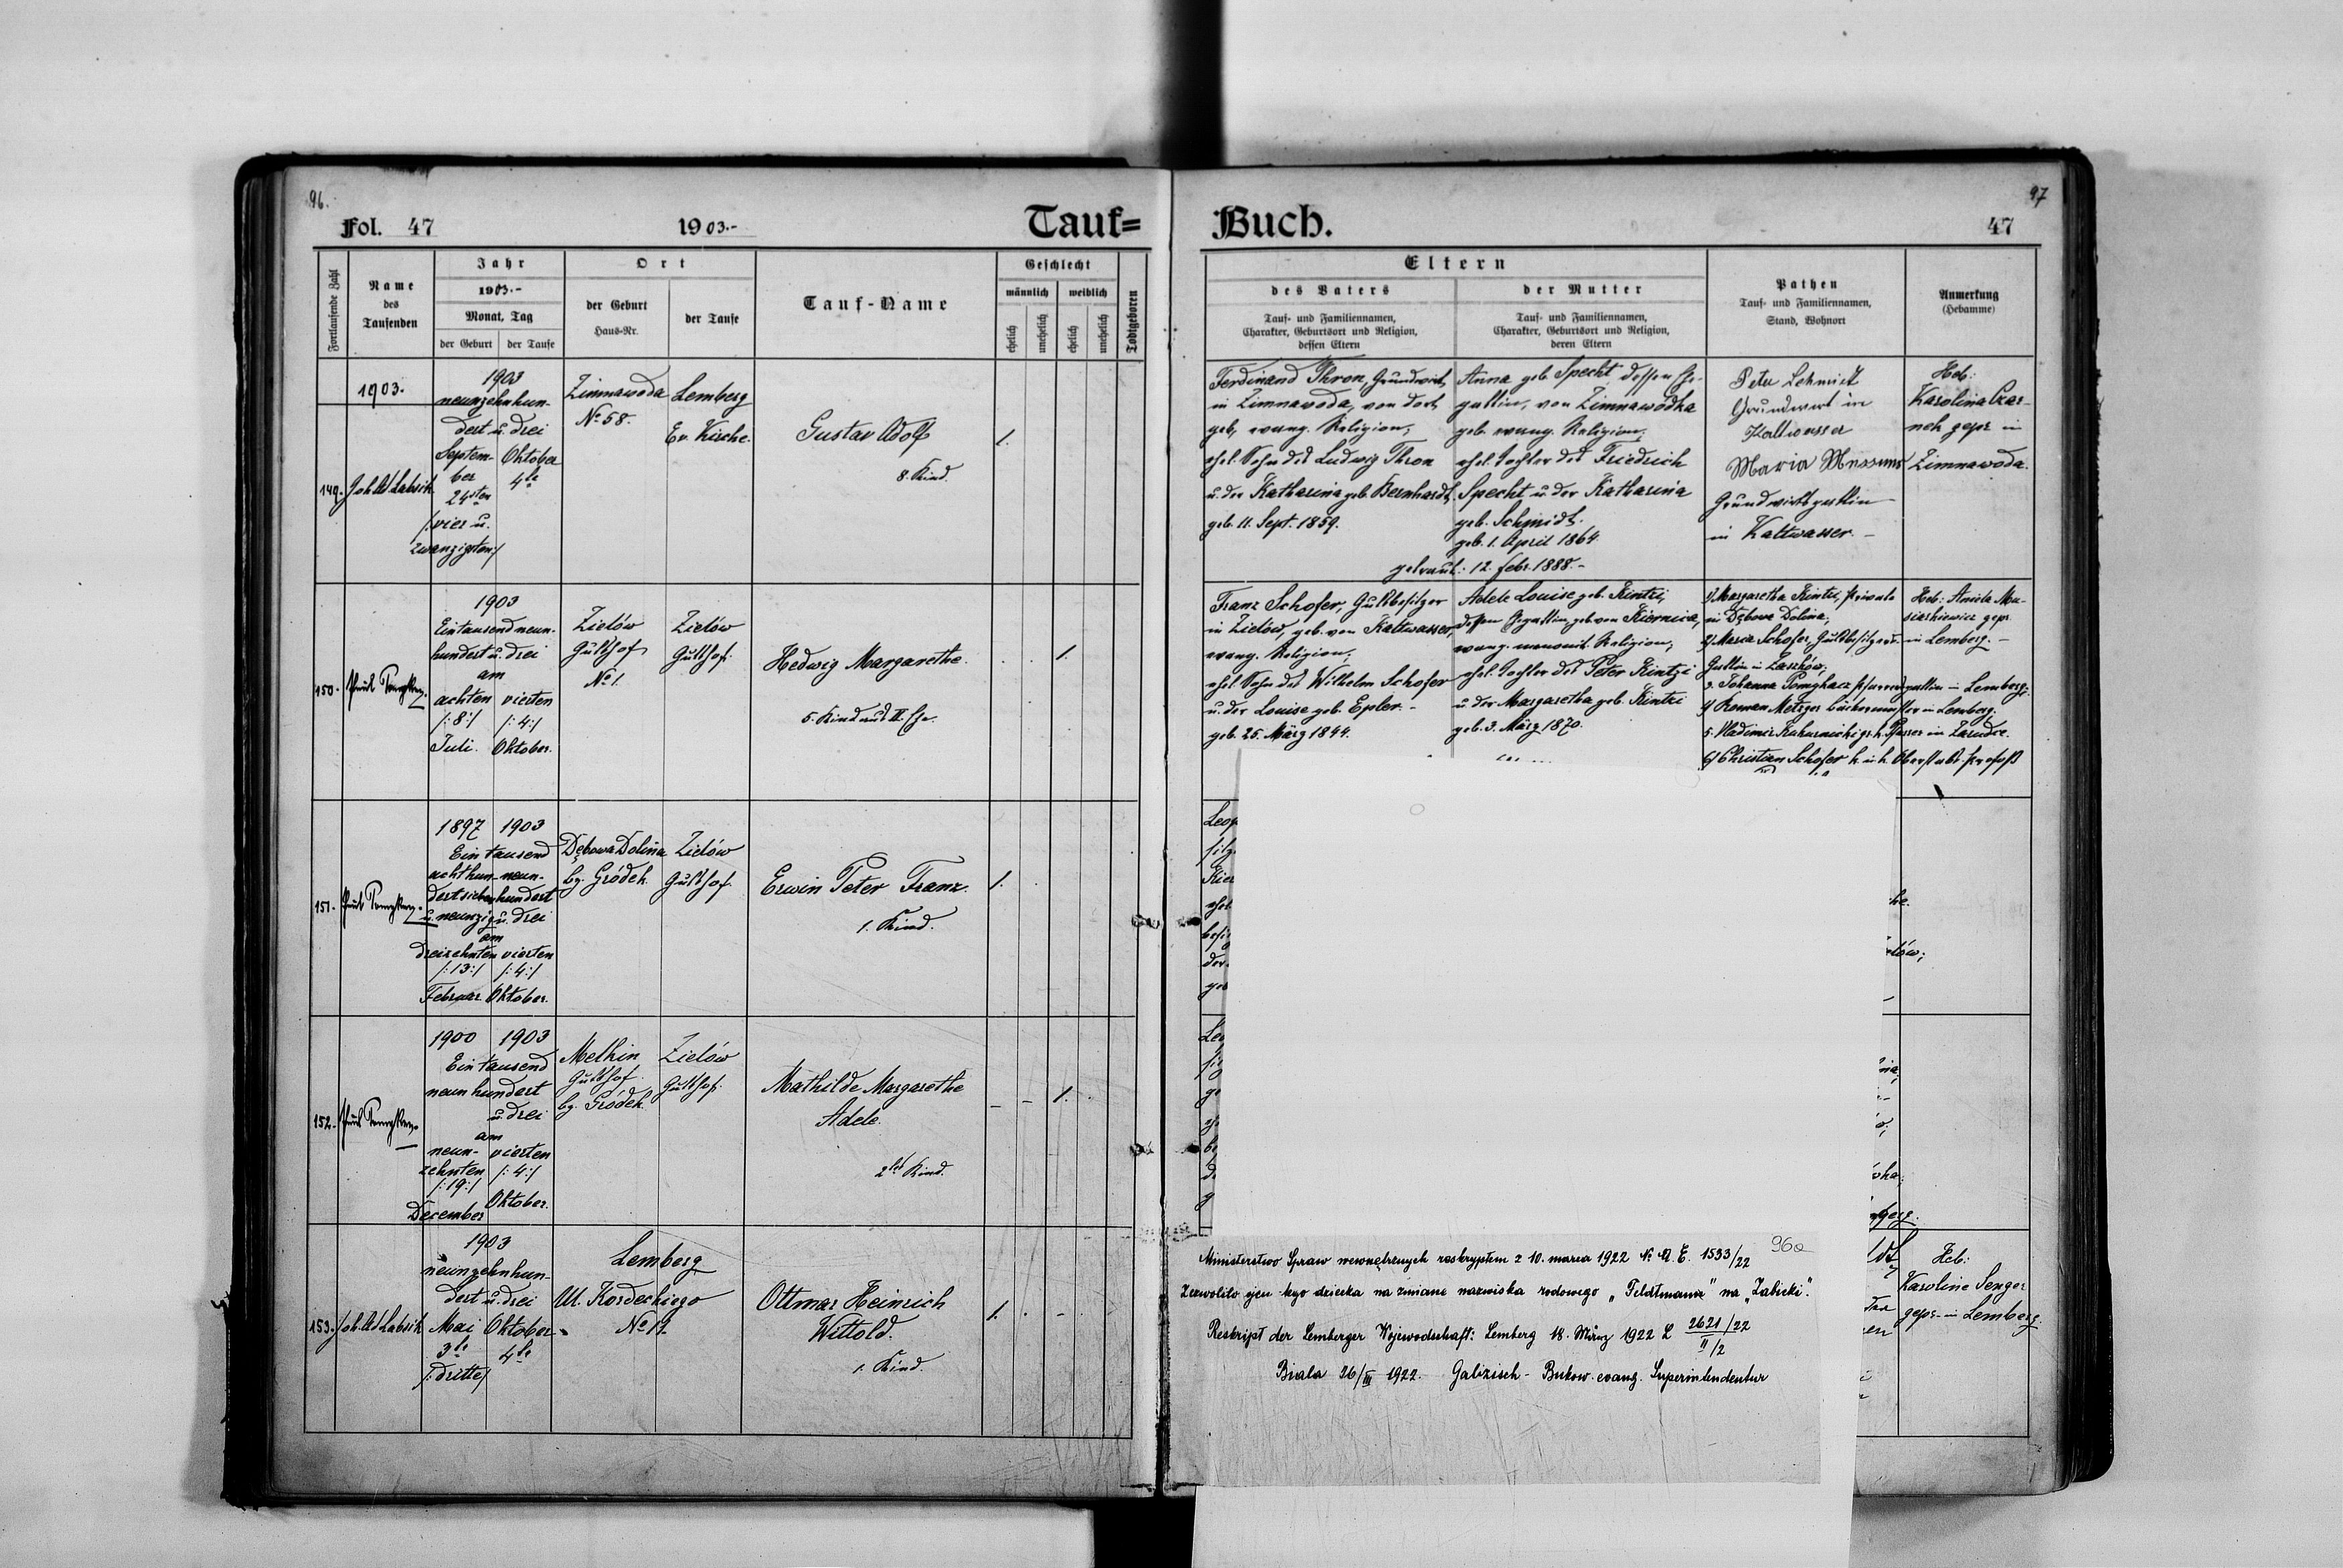 96.
Fol. 47
1903.-
Tauf=
Fortlaufende Zahl
Name
des
Taufenden
Jahr
1903.-
Monat, Tag
der Geburt
der Taufe
Ort
der Geburt
Haus-Nr.
der Taufe
Tauf-Name
Geschlecht
männlich
weiblich
ehelich
unehelich
ehelich
unehelich
Todtgeboren
1903.
149.
1903
neunzehnhun-
dert u. drei
Septem- Oktober
ber 4te
24sten
/:vier u.
zwanzigsten:/
Zimnawoda
No 58.
Lemberg
Ev. Kirche.
Gustav Adolf
8. Kind.
1.
150.
1903
Eintausend neun-
hundert u. drei
am
achten vierten
/:8:/ /:4:/
Juli. Oktober.
Zielów
Gutshof
No 1.
Zielów
Gutshof.
Hedwig Margarethe.
5. Kind aus II. Ehe.
1.
151.
1897 1903
Ein tausend
achthun- neun-
dert sieben hundert
u. neunzig u. drei
am
dreizehnten vierten
/:13:/ /:4:/
Februar Oktober.
Dębowa Dolina
bg. Gródek.
Zielów
Gutshof.
Erwin Peter Franz.
1. Kind.
1.
152.
1900 1903
Ein tausend
neun hundert
u. drei
am
neun- vierten
zehnten /:4:/
/:19:/
December Oktober.
Gutshof
bg. Gródek.
Zielów
Gutshof.
Mathilde Margarethe
Adele.
2tes Kind.
1.
153.
1903
neunzehnhun-
dert u. drei
Mai Oktober.
3te 4te
/:dritte/
Lemberg
Ul. Kordeckiego
Ottmar Heinrich
Wittold.
1. Kind.
1.
97
Buch.
47
Eltern
des Vaters
Tauf- und Familiennamen,
Charakter, Geburtsort und Religion,
dessen Eltern
der Mutter
Tauf- und Familiennamen,
Charakter, Geburtsort und Religion,
deren Eltern
Pathen
Tauf- und Familiennamen,
Stand, Wohnort
Anmerkung
(Hebamme)
Ferdinand Thron, Grundwirt
in Zimnawoda, von dort
geb, evang. Religion;
ehel. Sohn des Ludwig Thron
u. der Katharina geb. Bernhardt,
geb. 11. Sept. 1859.
Anna geb. Specht dessen Ehe-
gattin, von Zimnawódka
geb. evang. Religion,
ehel. Tochter des Friedrich
Specht u. der Katharina
geb. Schmidt.
geb. 1. April 1864.
getraut: 12. Febr. 1888.-
Peter Schmidt
Grundwirt in
Kaltwasser
Maria
Grundwirtsgattin
in Kaltwasser. -
Heb:
Karolina Czar-
nek gepr. in
Zimnawoda.
Franz Schofer, Gutsbesitzer
in Zielów, geb. von Kaltwasser,
evang. Religion;
ehel. Sohn des Wilhelm Schofer
u. der Louise geb. Epler. -
geb. 25. März 1844.
Adele Louise geb. Kintzi,
dessen Ehegattin, geb. von Kiernica,
evang. menonit. Religion;
ehel. Tochter des Peter Kintzi
u. der Margaretha geb. Kintzi
geb. 3. März 1870.
1) Margaretha Kintzi, Private
in Dębowa Dolina;
2) Maria Schofer, Gutsbesitzers-
Gattin in Zaszków;
3. Johanna Pomykacz Pfarrersgattin in Lemberg;
4) Roman Metzger Bäckermeister in Lemberg;
5. Wladimir gr. k. Pfarrer in Zarudce.
6) Christian Schofer k. u. k. Oberstabs-Profoß
Heb: Aniela
gepr.
in Lemberg. -
Leop
Kier
ehel.
ke.
elów;
nia,
960
Ministerstwo Spraw wewnętrznych reskryptem z 10. marca 1922 No A. E. 1533/22
Zezwoliło ojcu tego dziecka na zmianę nazwiska rodowego „Feldtmann" na „Zabicki".
Reskript der Lemberger Wojewodschaft: Lemberg 18. März 1922 L 2621/22
II/2
Biala 26/III 1922. Galizisch-Bukow. evang. Superintendentur
Heb:
Karoline Senger
gepr. in Lemberg.